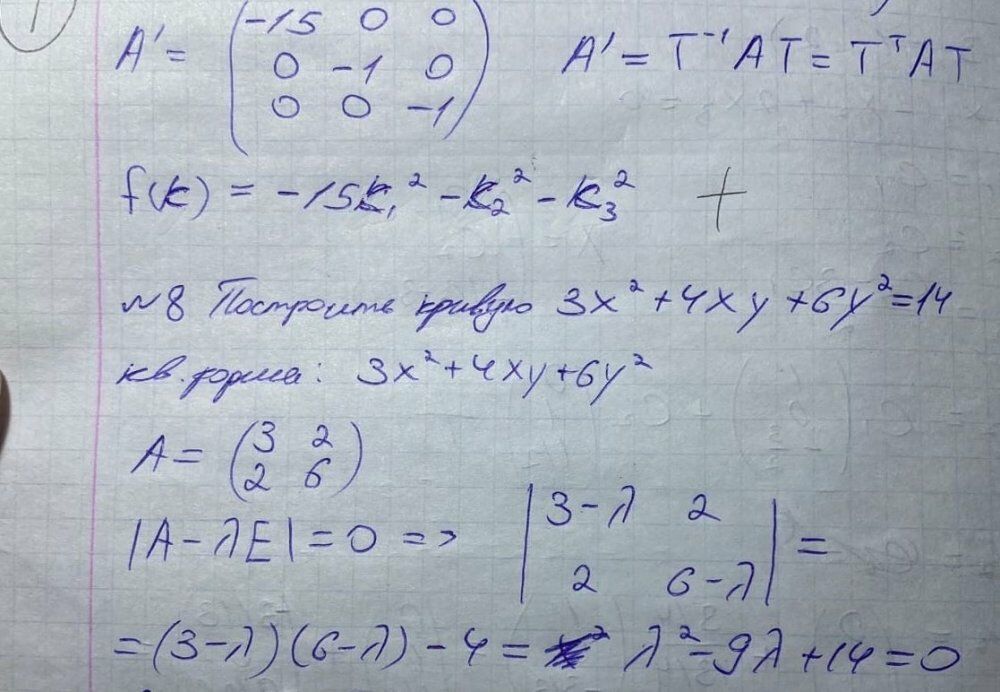 1
A' = (-15 0 0
0 -1 0
0 0 -1) A' = T⁻¹AT = TᵀAT
f(k) = -15k₁² - k₂² - k₃² +
№8 Построить кривую 3x² + 4xy + 6y² = 14
кв. форма: 3x² + 4xy + 6y²
A = (3 2
2 6)
|A - λE| = 0 => |3-λ 2
2 6-λ| =
= (3-λ)(6-λ) - 4 = λ² - 9λ + 14 = 0